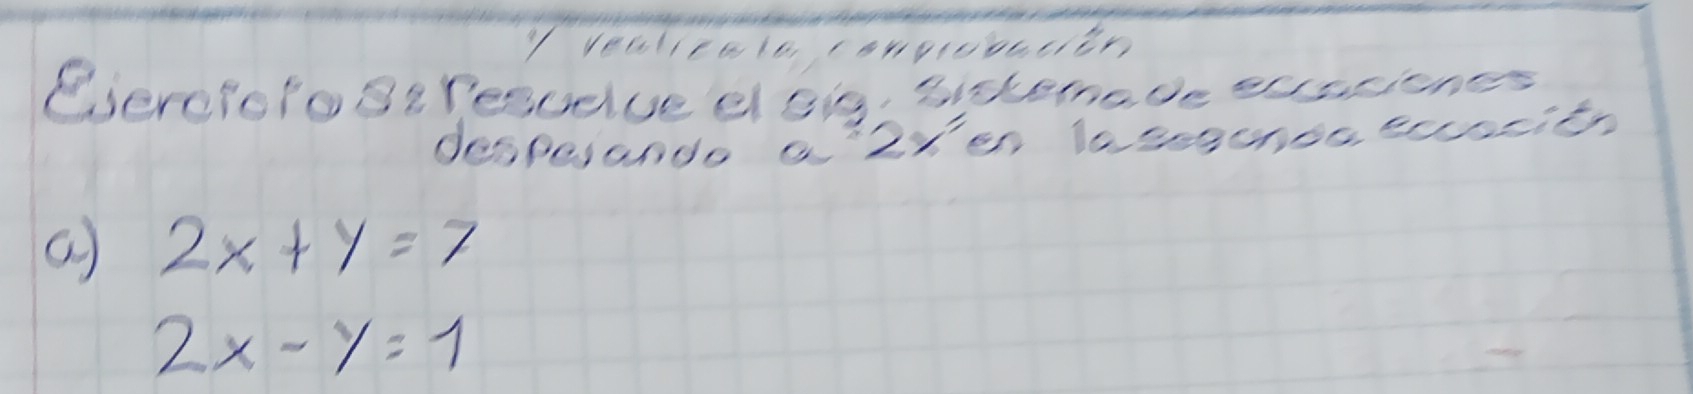 y realiza la comprobación
Ejercicio 8: resuelve el sig. sistema de ecuaciones
despejando a "2x" en la segunda ecuación
a) 2x + y = 7
2x - y = 1